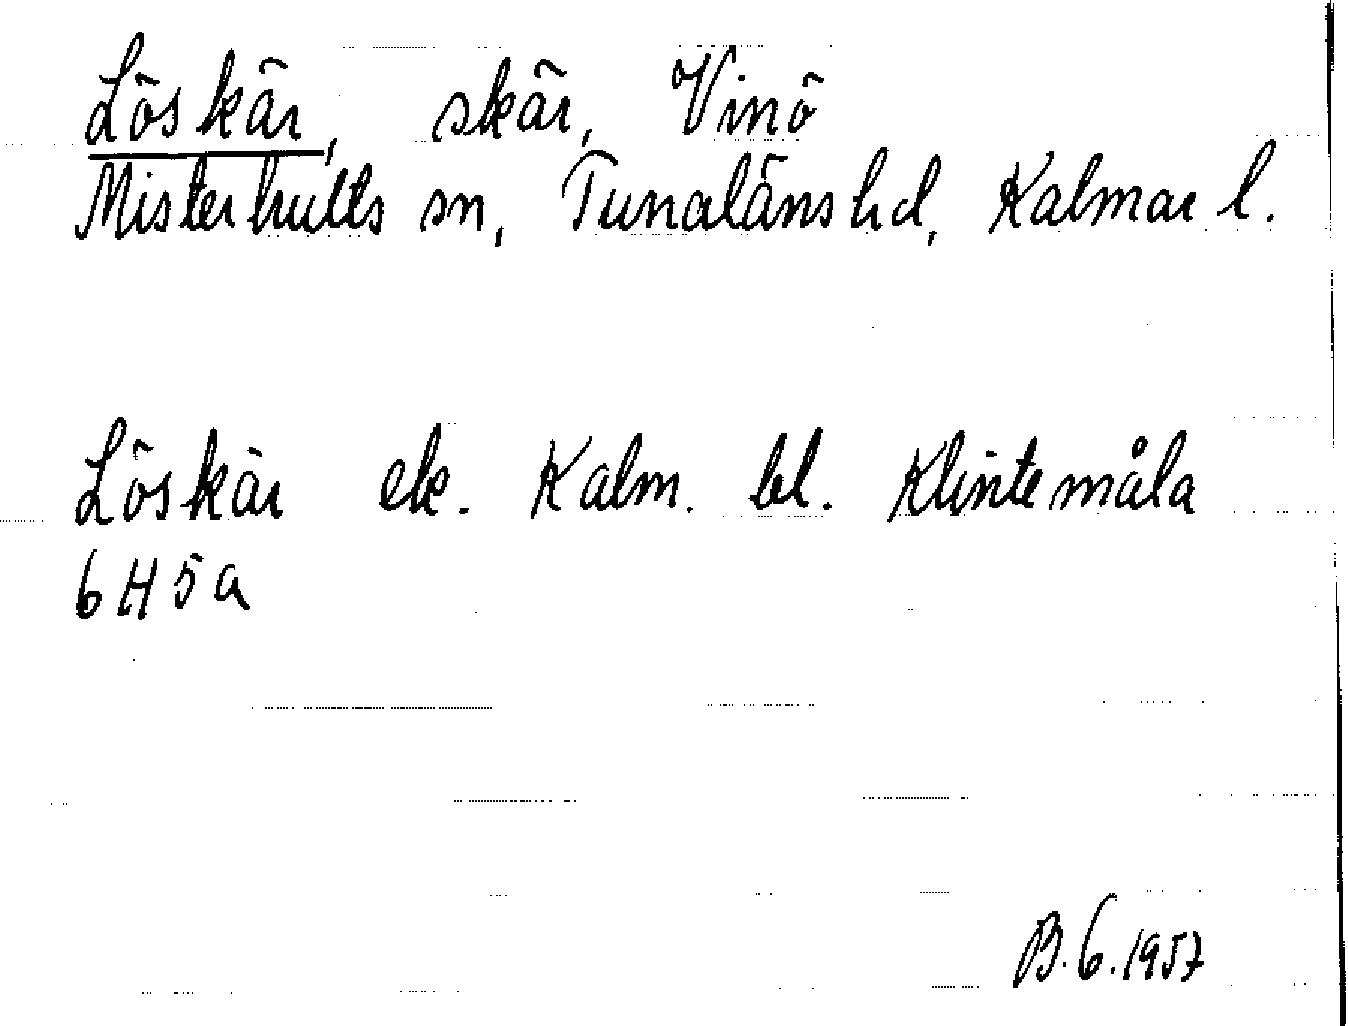 Löskär, skär, Vinö
Misterhults sn, Tunaläns hd, Kalmar l.
Löskär ek. Kalm. bl. Klintemåla
6H5a
B.G.1957